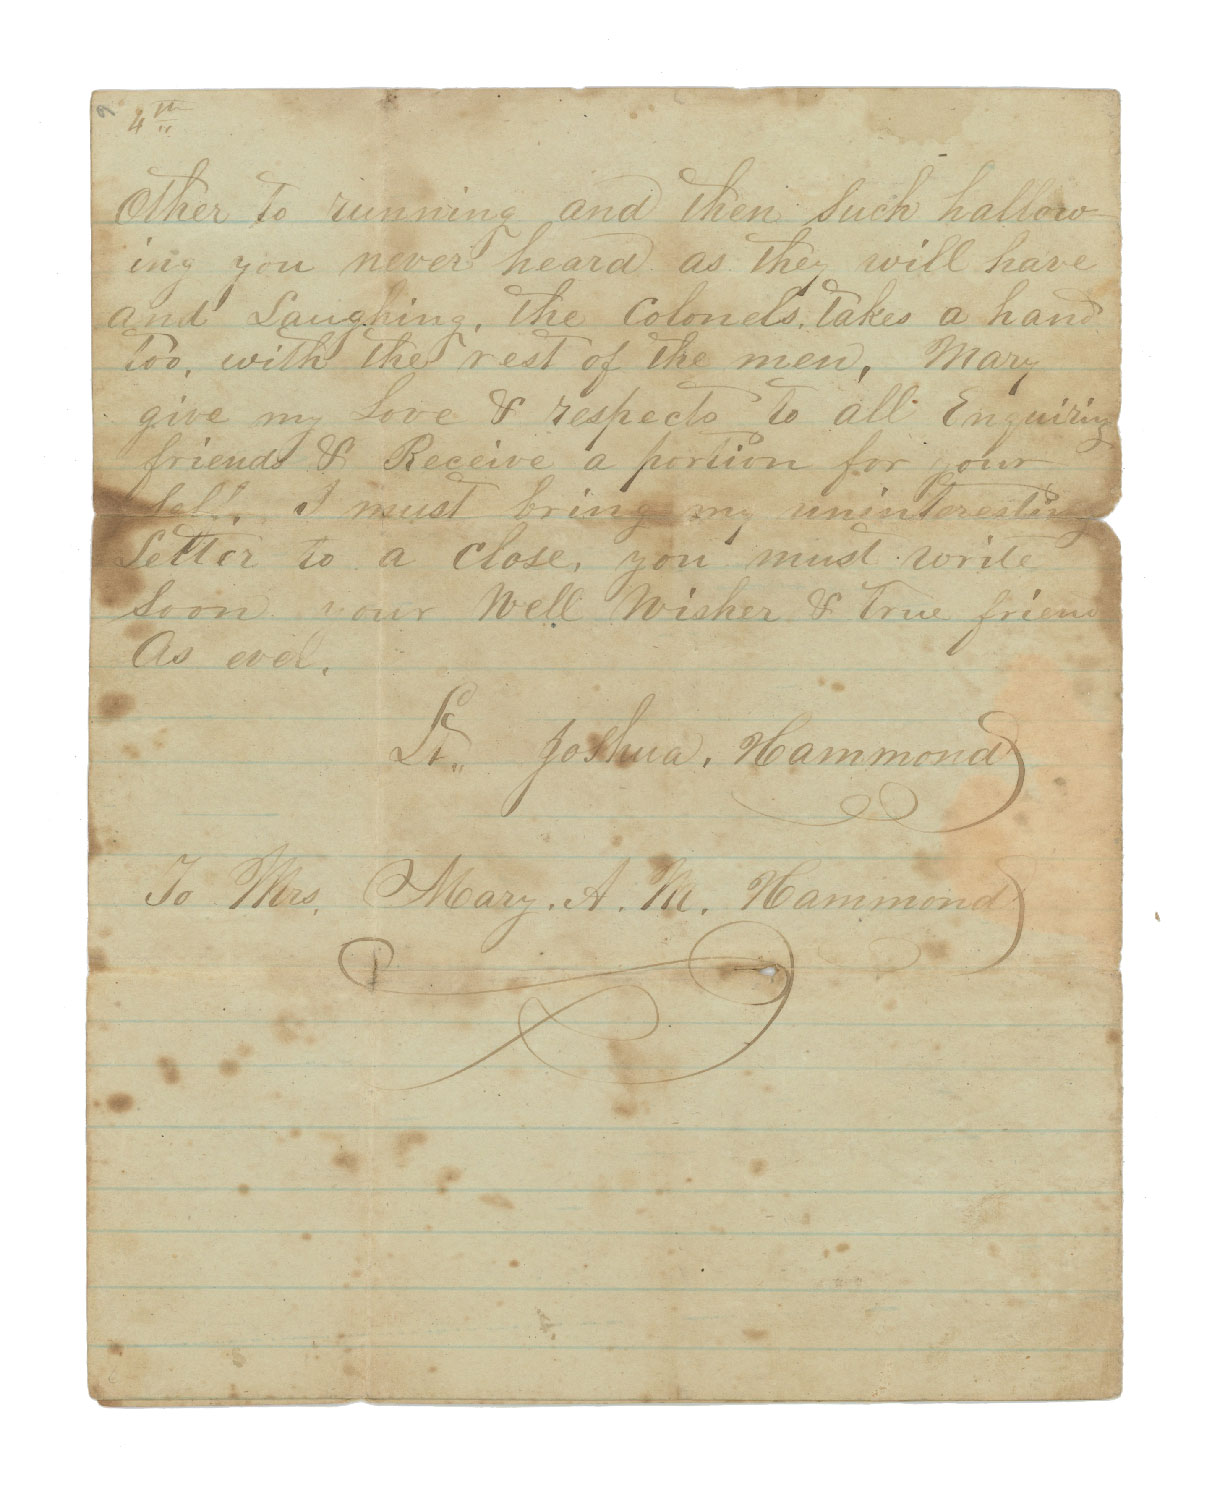 4th
Other to running and then such hallow-
ing you never heard as they will have
and Laughing, the Colonels, takes a hand
too, with the rest of the men, Mary
give my Love & respects to all Enquiring
friends & Receive a portion for your
self, I must bring my uninteresting
Letter to a close, you must write
soon your Well Wisher & true friend
As ever.
Lt. Joshua, Hammond
To Mrs. Mary. A. M. Hammond